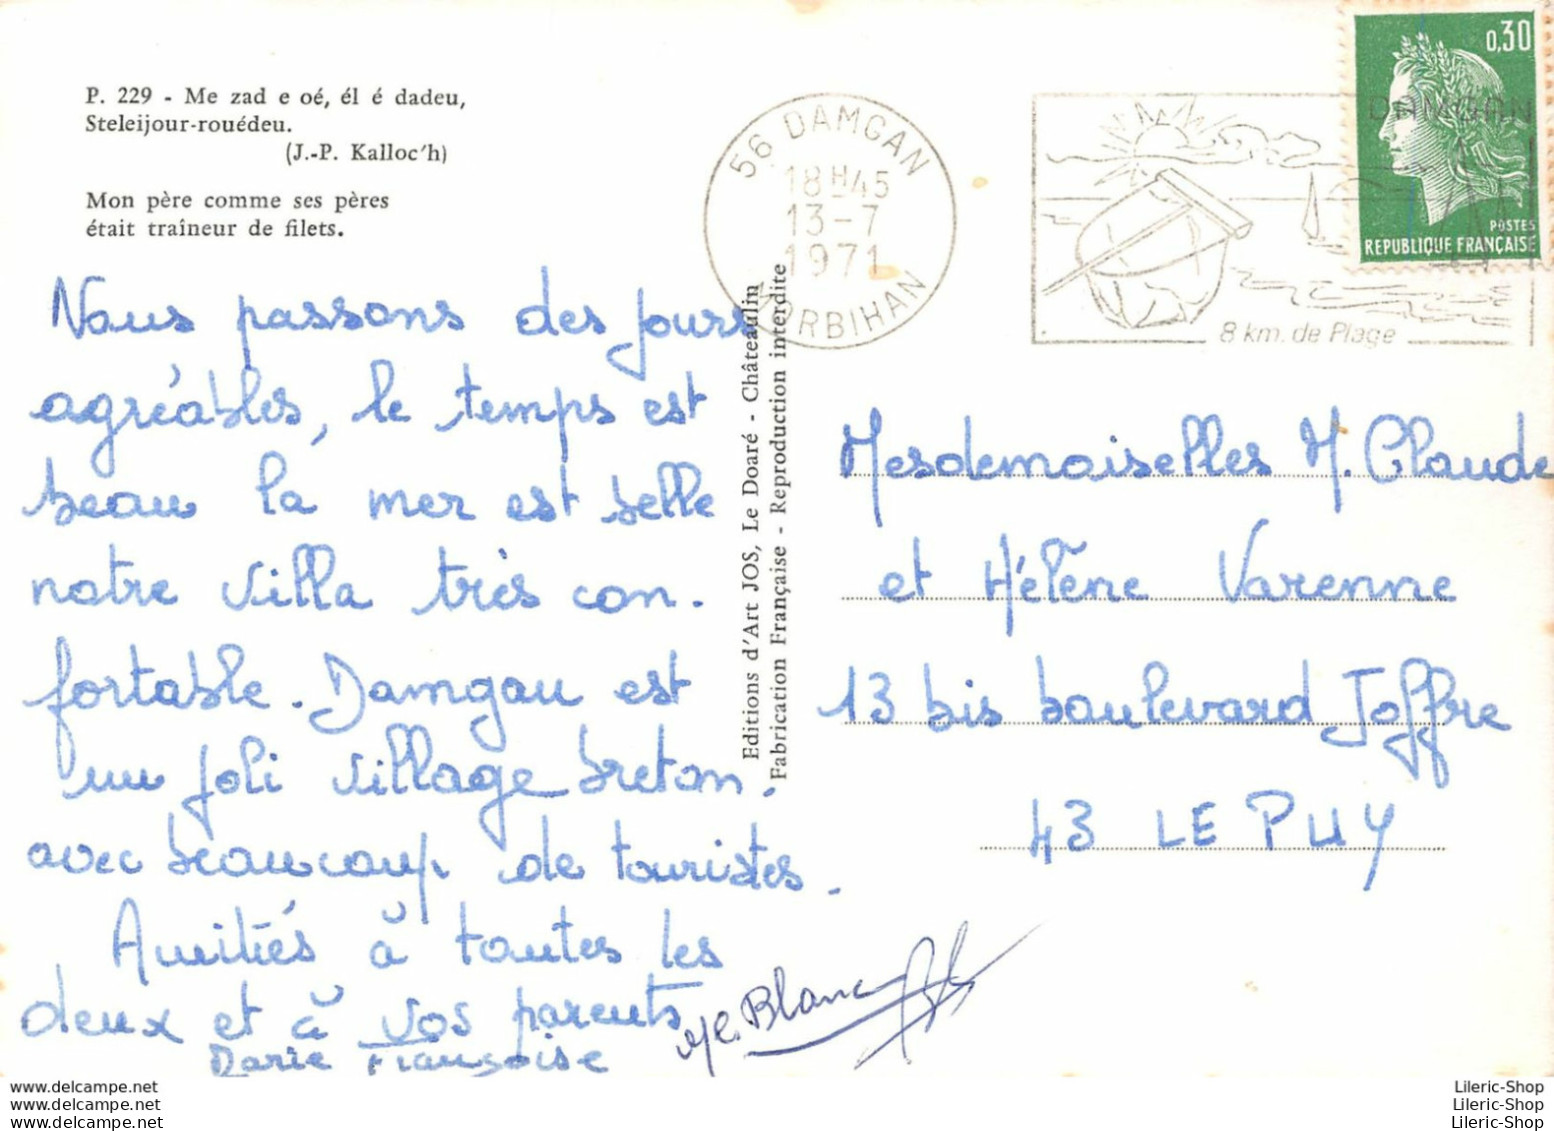 P. 229 - Me zad e oé, él é dadeu,
Steleijour-rouédeu.
(J.-P. Kalloc'h)
Mon père comme ses pères
était traîneur de filets.
Nous passons des jours
agréables, le temps est
beau la mer est belle
notre villa très con.
fortable. Damgan est
un joli village breton.
avec beaucoup de touristes.
Amitiés à toutes les
deux et à vos parents
Marie Françoise
Blanc
Editions d'Art JOS, Le Doaré - Châteaulin
Fabrication Française - Reproduction interdite
56 DAMGAN
18H45
13-7
1971
MORBIHAN
DAMGAN
8 km. de Plage
0,30
POSTES
REPUBLIQUE FRANÇAISE
Mesdemoiselles M. Claude
et Hélène Varenne
13 bis boulevard Joffre
43 LE PUY
www.delcampe.net
www.delcampe.net
www.delcampe.net
Lileric-Shop
Lileric-Shop
Lileric-Shop